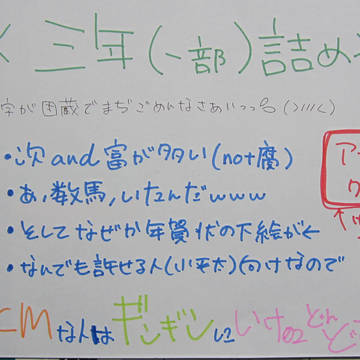 く三年(一部)詰め
字が困蔵でまぢごめんなさあいっっ名(>///<)
・次and富が多い(not腐)
・あ、数馬、いたんだwww
・そしてなぜか年賀状の下絵が←
・なんでも許せる人(小平太)向けなので
CMな人はギンギンにいけどんどん